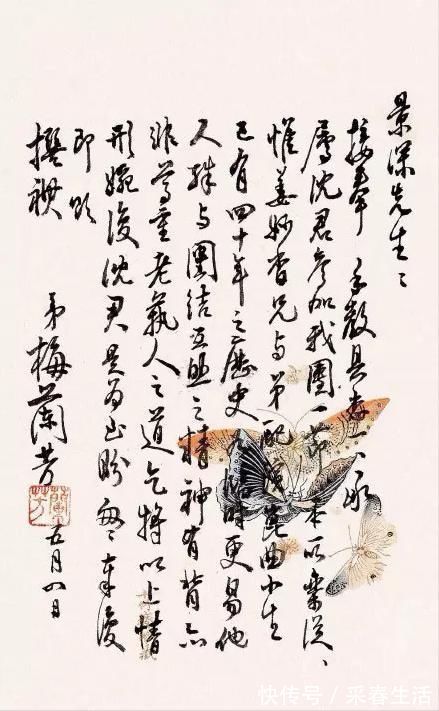 景深先生：
接奉 手教具悉一一承
屬沈君參加我團一節本所樂從、
惟姜妙香兄与弟配演崑曲小生
已有四十年之歷史若臨時更易他
人殊与團結互助之精神有背亦
非尊重老藝人之道乞将以上情
形婉復沈君是為至盼匆匆奉復
即頌
撰祺
弟梅蘭芳
五月四日
快传号／采春生活